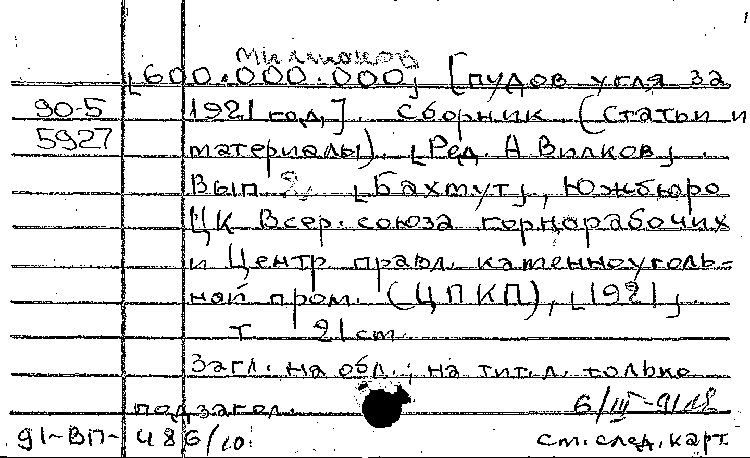 Миллионов
⌊600.000.000⌋ [пудов угля за
90-5 1921 год,]. Сборник. (Статьи и
5927 материалы). ⌊Ред. А Вилков⌋.
Вып 2, ⌊Бахмут⌋, Южбюро
ЦК Всер. союза горнорабочих
и Центр правл. каменноуголь-
ной пром. (ЦПКП), ⌊1921⌋.
т 21 см.
Загл. на обл.; на тит. л. только
подзагол. 6/III-91
91-ВП-486/10. см. след. карт